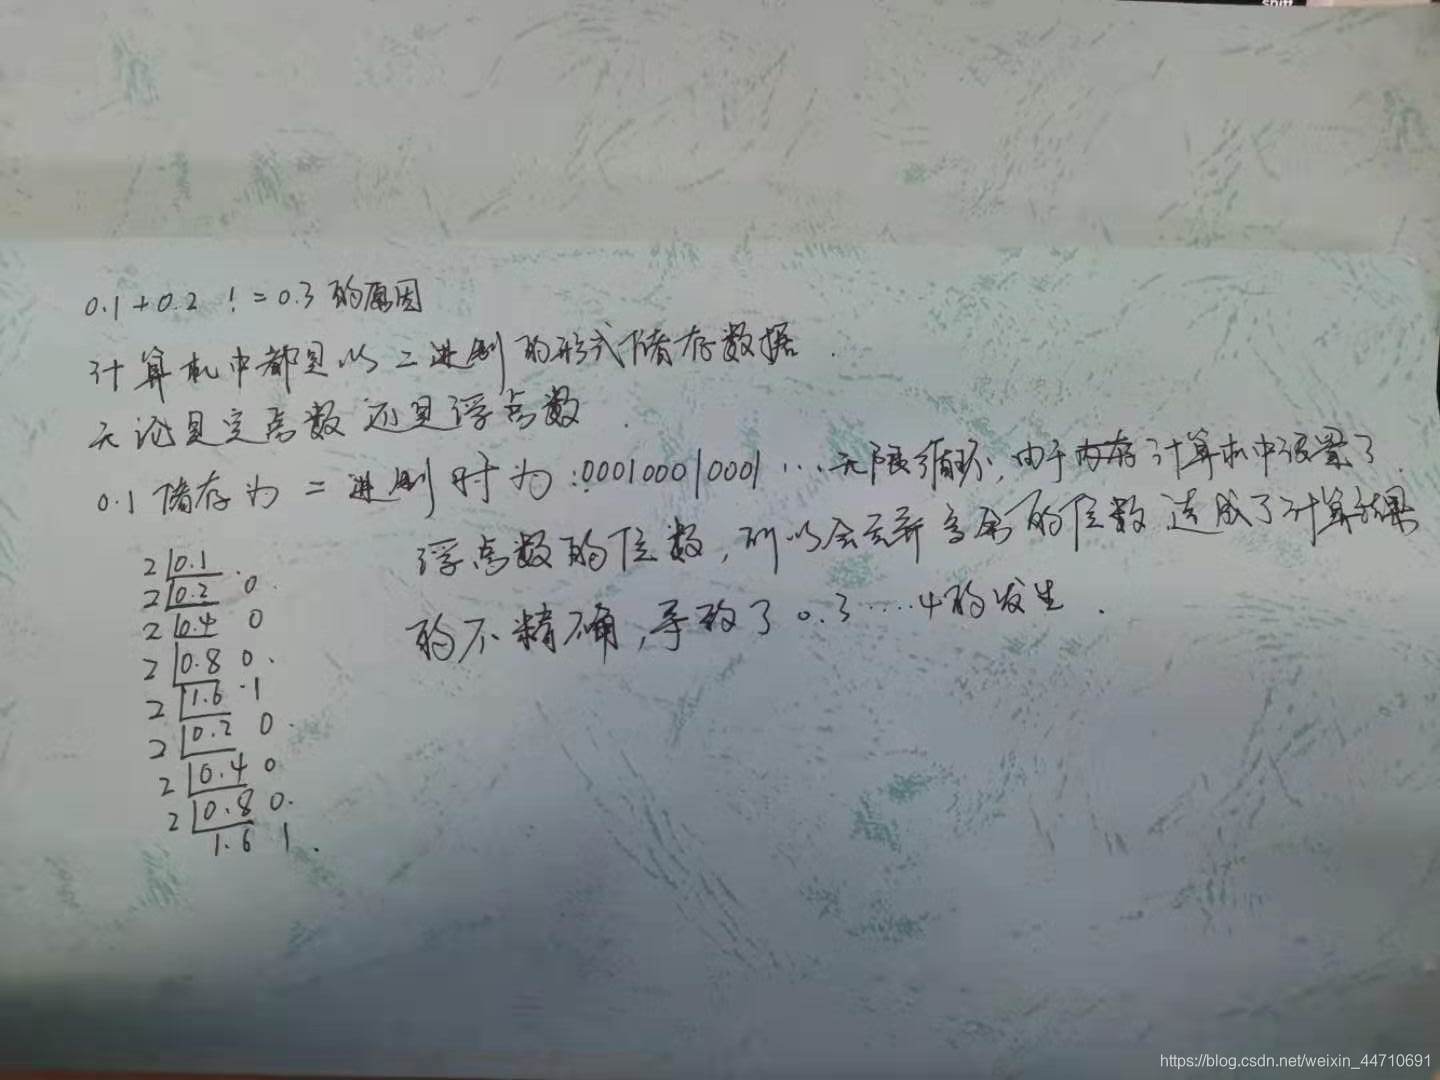 shift
0.1+0.2 != 0.3 的原因
计算机中都是以二进制的形式储存数据.
无论是定点数还是浮点数.
0.1 储存为二进制时为:000100010001 ...无限循环,由于内存计算机中设置了
浮点数的位数,所以会丢弃多余的位数造成了计算结果
的不精确,导致了 0.3....4的发生.
2 0.1
2 0.2 0
2 0.4 0
2 0.8 0.
2 1.6 1
2 0.2 0.
2 0.4 0
2 0.8 0.
1.6 1.
https://blog.csdn.net/weixin_44710691